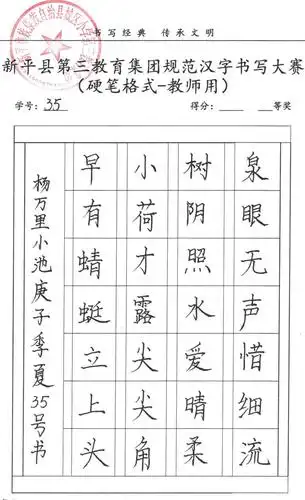 书写经典 传承文明
新平县第三教育集团规范汉字书写大赛
（硬笔格式-教师用）
学号：35 得分：____ ____等奖
泉眼无声惜细流
树阴照水爱晴柔
小荷才露尖尖角
早有蜻蜓立上头
杨万里小池庚子季夏35号书